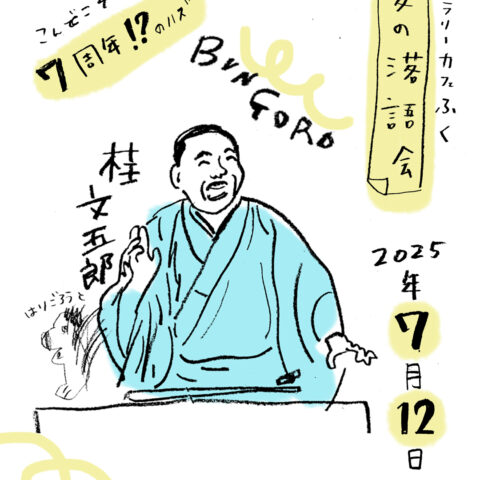 こんどこそ
7周年!?のハズ
BUNGORO
ラリーカフェふく
の落語会
桂文五郎
はりごろうと
2025年
7月
12日